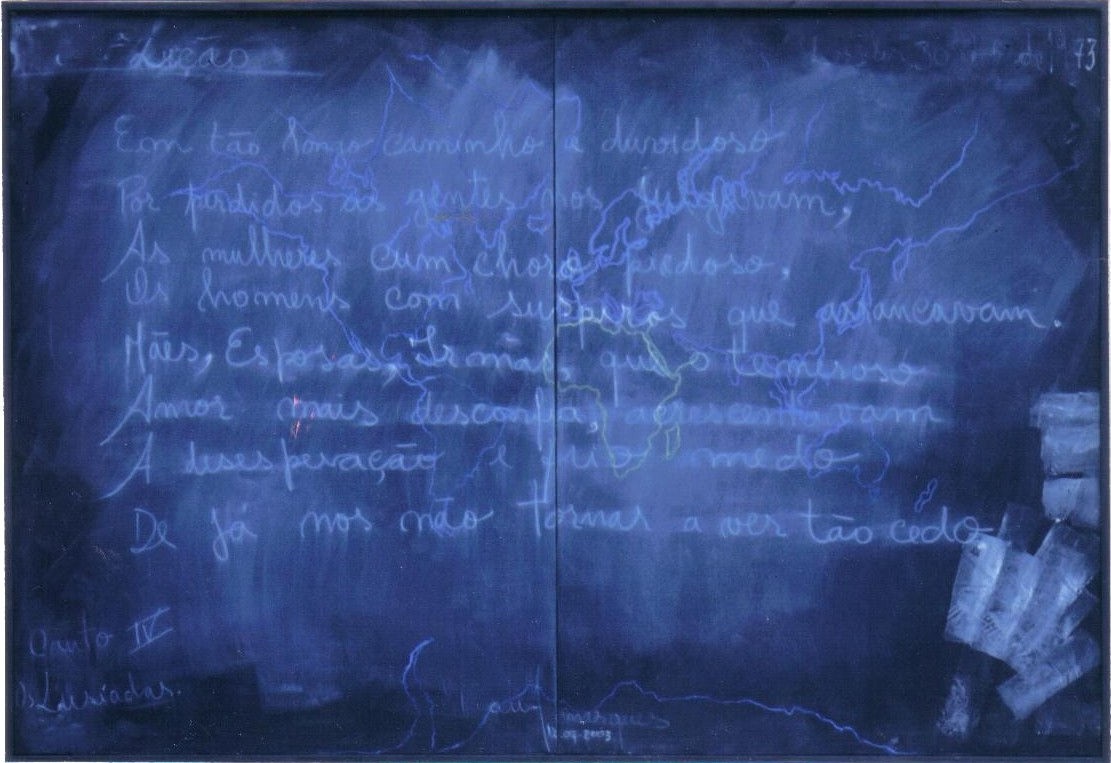 Lição
73
Em tão longo caminho e duvidoso
Por perdidos as gentes nos julgavam,
As mulheres cum choro piedoso,
Os homens com suspiros que arrancavam.
Mães, Esposas, Irmãs, que o temeroso
Amor mais desconfia, acrescentavam
A desesperação e frio medo
De já nos não tornar a ver tão cedo
Canto IV
Os Lusíadas.
2003